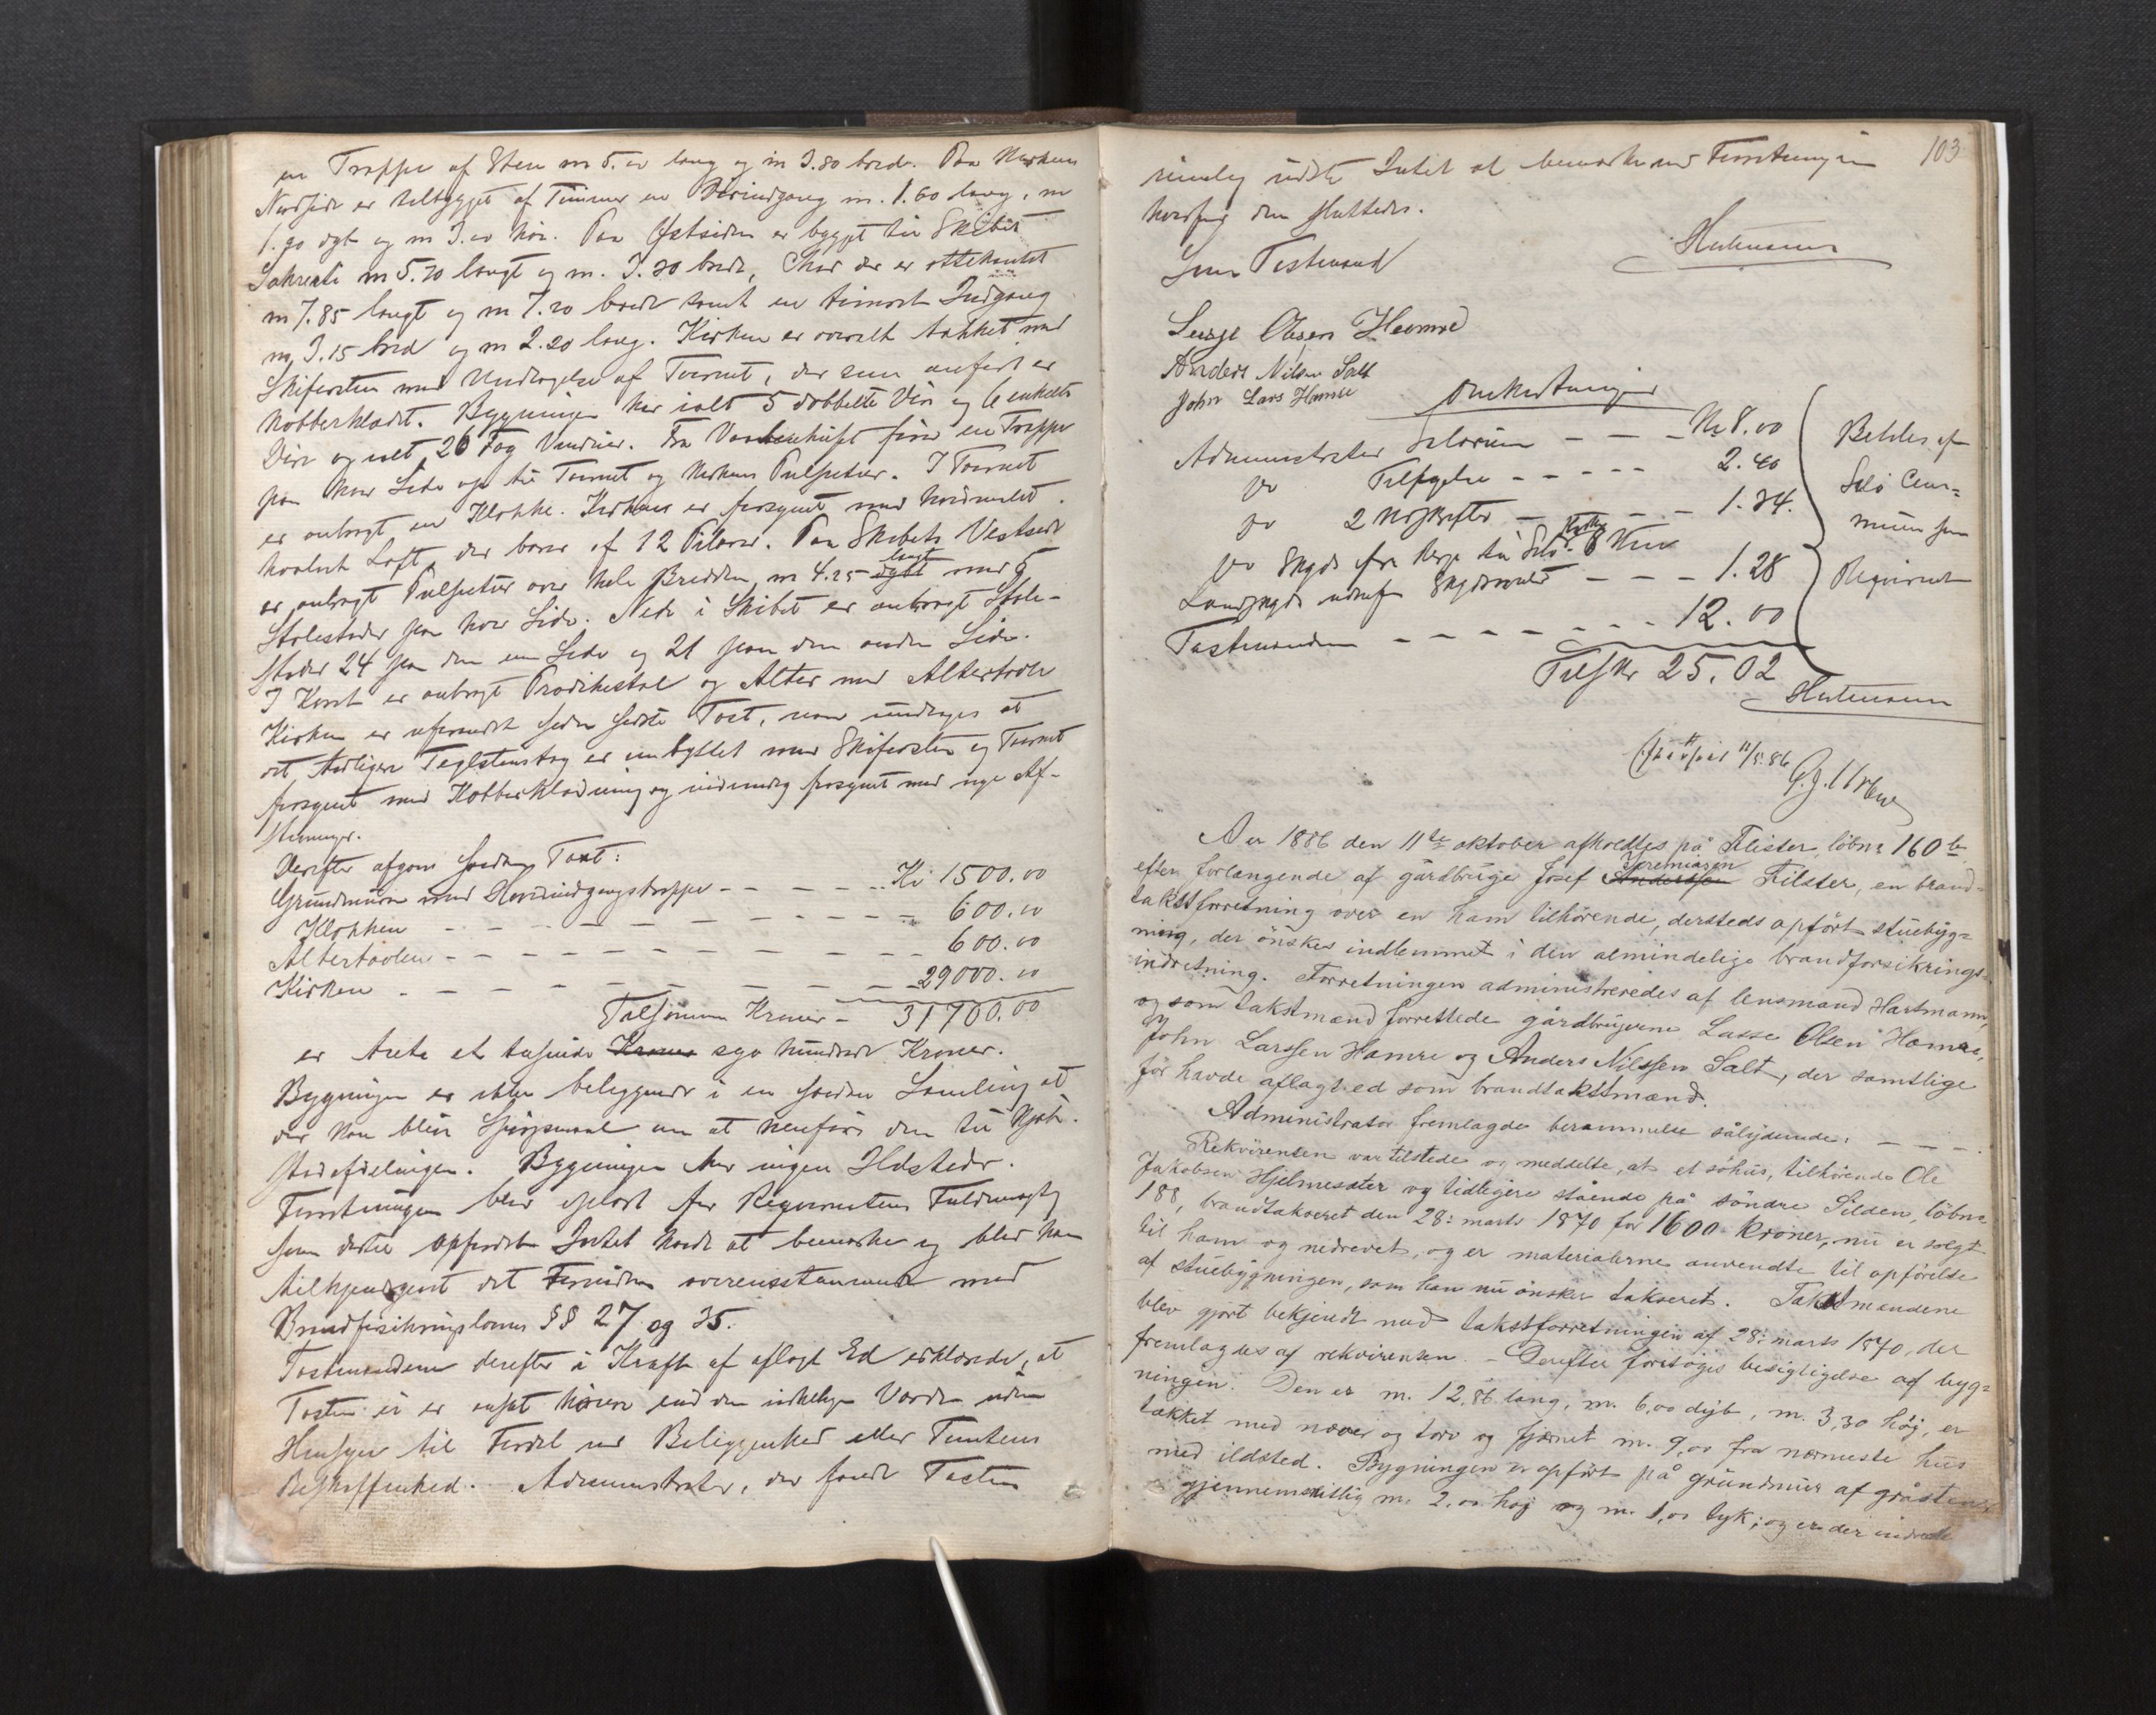 en Trappe af Sten m 5.00 lang og m 3.80 bred. Paa Kirkens
Nordside er tilbygget af Tømmer en Indgang m. 1.60 lang, m
1.90 dyb og m 3.00 høi. Paa Østsiden er bygget til Skibet
Sakresti m 5.70 langt og m. 3.30 bredt, Chor der er ottekantet
m 7.85 langt og m 7.20 bredt samt en Indgang
m 3.15 bred og m 2.20 lang. Kirken er overalt tækket med
Skifersten med Undtagelse af Taarnet, der som anført er
kobberklædt. Bygningen har ialt 5 dobbelte Døre og 6 enkelte
Døre og ialt 26 Fag Vinduer. Fra Vaabenhuset fører en Trappe
paa hver Side op til Taarnet og Kirkens Pulpetur. I Taarnet
er anbragt en Klokke. Kirken er forsynet med hvidmalet
hvælvet Loft, der bæres af 12 Pilarer. Paa Skibets Vestside
er anbragt Pulpetur over hele Bredden, m 4.25 dybt langt med 5
Stolestader paa hver Side. Nede i Skibet er anbragt Stole-
stader 24 paa den ene Side og 21 paa den anden Side.
I Koret er anbragt Prædikestol og Alter med Altertavle
Kirken er uforandret siden sidste Taxt, naar undtages at
det tidligere Teglstenstag er ombyttet med Skifersten og Taarnet
forsynet med Kobberklædning og indvendig forsynet med nye Af-
stivninger.
Derefter afgaves saadan Taxt:
Grundmuren med Hovedindgangstrappe - - - - Kr 1500.00
Klokken - - - - - - - - 600.00
Altertavlen - - - - - - - 600.00
Kirken - - - - - - - - 29000.00
Tilsammen Kroner - 31700.00
er tredive et tusinde Kroner syv hundrede Kroner.
Bygningen er ikke beliggende i en saadan Samling at
der kan blive Spørgsmaal om at henføre den til Kjøb-
stadafdelingen. Bygningen har ingen Ildsteder.
Forretningen blev oplæst for Rekvirentens Fuldmægtig
som dertil opfordret Intet havde at bemærke og blev han
tilkjendegivet det Fornødne overensstemmende med
Brandforsikringslovens §§ 27 og 35.
Taxtmændene derefter i Kraft af aflagt Ed erklærede, at
Taxten ei er ansat høiere end den virkelige Værdi uden
Hensyn til Fordel ved Beliggenhed eller Tomtens
Beskaffenhed. Administrator, der fandt Taxten
103
rimelig vidste Intet at bemærke ved Forretningen
hvorefter den sluttedes.
Hartmann
Som Taxtmænd
Lasse Olsen Hamre
Anders Nilsen Salt
John Lars Hamre
Omkostninger
Administrator Salarium - - - Kr 8.00
do Tilsyn - - - - 2.40
do 2 Udskrifter - - - 1.34.
do Skyds fra til Selø Kirke 8 Km
Landskyds Skydsmand - - - 1.28
Taxtmændene - - - - - - 12.00
Tils Kr 25.02
Betales af
Selø Com-
mune som
Rekvirent
Hartmann
Aar 1886 den 11te oktober afholdtes på Flister, löbne 160 b
efter forlangende af gårdbruger Josef Anderssen Jeremiasen Filster, en brand-
takstforretning over en ham tilhörende, dersteds opfört stuebyg-
ning, der önskes indlemmet i den almindelige brandforsikrings-
indretning. Forretningen administreredes af lensmand Hartmann,
og som takstmænd forrettede gårdbrugerne Lasse Olsen Hamre,
John Larssen Hamre og Anders Nilssen Salt, der samtlige
för havde aflagt ed som brandtakstmænd.
Administrator fremlagde berammelse sålydende: - - -
Rekvirenten var tilstede og meddelte, at et söhus, tilhörende Ole
Jakobsen Hjelmesæter og tidligere stående på söndre Silden, löbne
188, brandtakseret den 28: marts 1870 for 1600 kroner, nu er solgt
til ham og nedrevet, og er materialerne anvendte til opförelse
af stuebygningen, som han nu önsker takseret. Takstmændene
blev gjort bekjendt med takstforretningen af 28: marts 1870, der
fremlagdes af rekvirenten. - Derefter foretoges besigtigelse af byg-
ningen. Den er m. 12,86 lang, m. 6,00 dyb, m. 3,30 höj, er
tækket med næver og torv og fjernet m. 9,00 fra nærmeste hus
med ildsted. Bygningen er opfört på grundmur af gråsten
gjennemsnitlig m. 2,00 höj og m. 1,00 tyk; og er der indredet